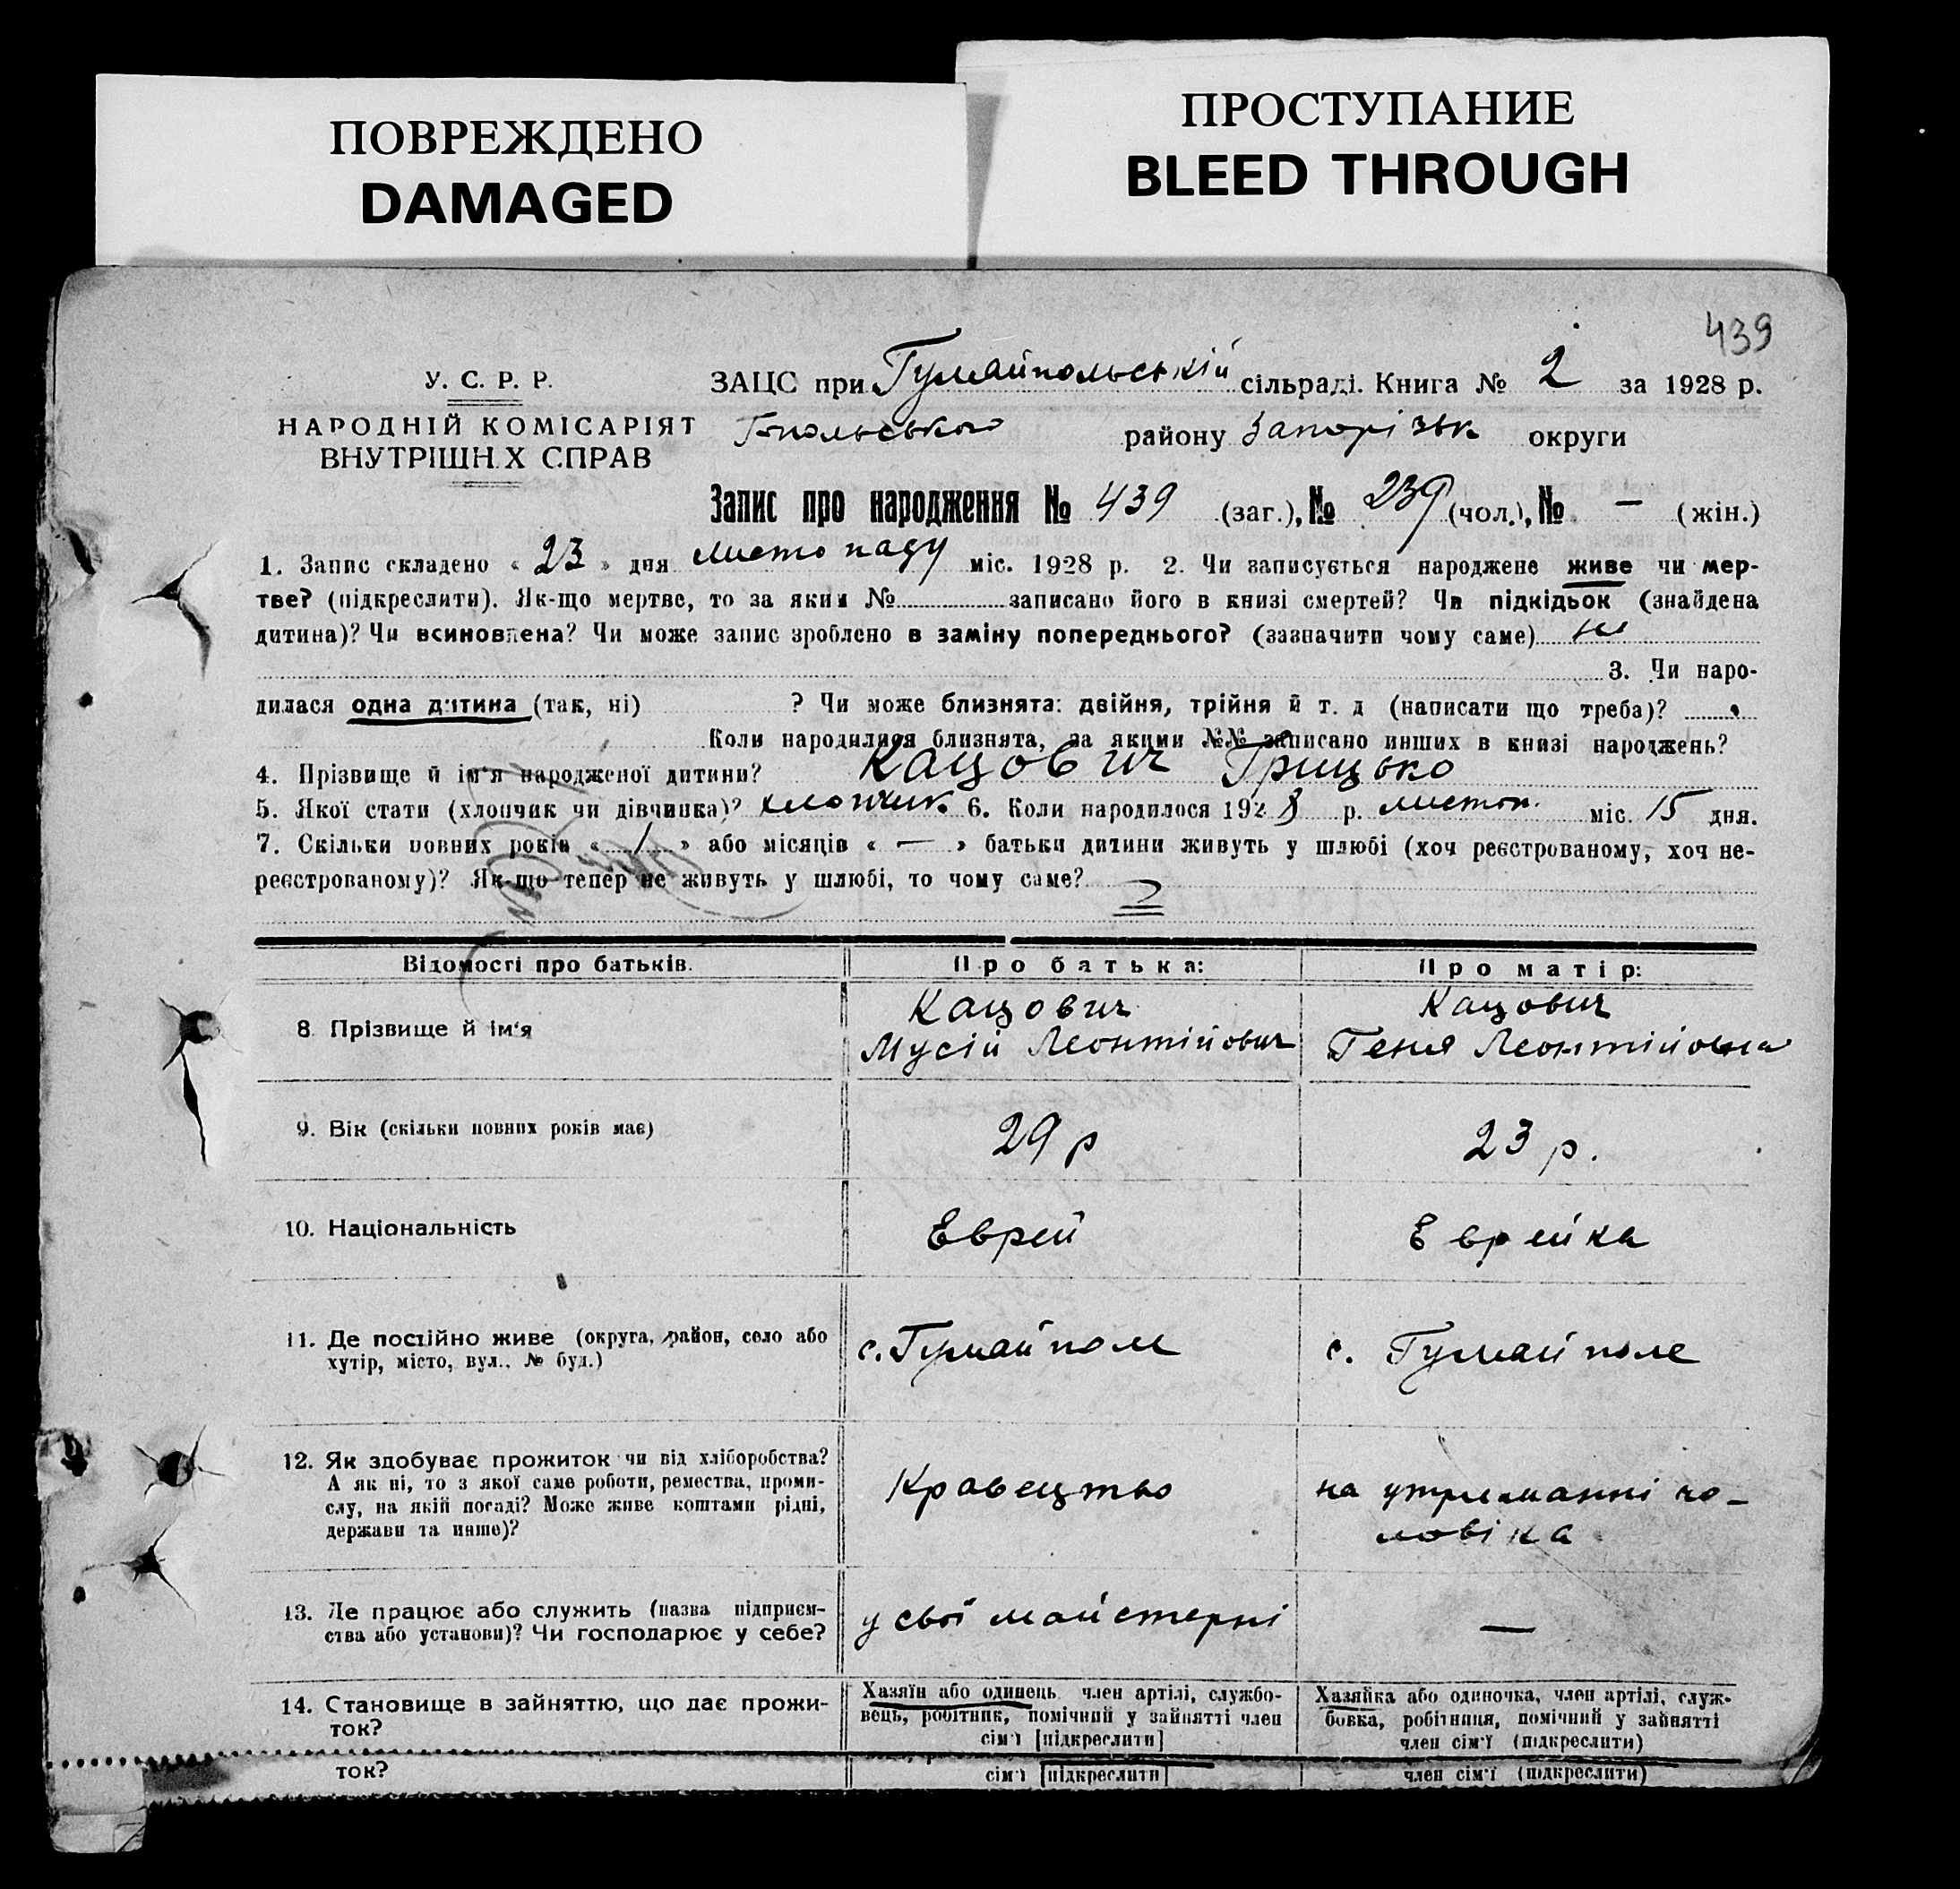 ПОВРЕЖДЕНО
DAMAGED
ПРОСТУПАНИЕ
BLEED THROUGH
439
У. С. Р. Р.
НАРОДНІЙ КОМІСАРІЯТ
ВНУТРІШН.Х СПРАВ
ЗАЦС при Гуляйпольській сільраді. Книга № 2 за 1928 р.
Гпольського району Запорізьк округи
Запис про народження № 439 (заг.), № 239 (чол.), № — (жін.)
1. Запис складено « 23 » дня листопаду міс. 1928 р. 2. Чи записується народжене живе чи мер-
тве? (підкреслити). Як-що мертве, то за яким № записано його в книзі смертей? Чи підкідьок (знайдена
дитина)? Чи всиновлена? Чи може запис зроблено в заміну попереднього? (зазначити чому саме) ні
3. Чи наро-
дилася одна дитина (так, ні) ? Чи може близнята: двійня, трійня й т. д (написати що треба)?
Коли народилися близнята, за якими №№ записано инших в книзі народжень?
4. Прізвище й ім'я народженої дитини? Кацович Грицько
5. Якої стати (хлопчик чи дівчинка)? хлопчик. 6. Коли народилося 1928 р. листоп. міс. 15 дня.
7. Скільки повних років « 1 » або місяців « — » батьки дитини живуть у шлюбі (хоч реєстрованому, хоч не-
реєстрованому)? Як-що тепер не живуть у шлюбі, то чому саме?
Відомості про батьків. Про батька: Про матір:
8 Прізвище й ім'я
Кацович
Мусій Леонтійович
Кацович
Геня Леонтійовна
9. Вік (скільки повних років має) 29 р 23 р.
10. Національність Еврей Еврейка
11. Де постійно живе (округа, район, село або
хутір, місто, вул., № буд.)
с. Гуляйполе
с. Гуляйполе
12. Як здобуває прожиток чи від хліборобства?
А як ні, то з якої саме роботи, ремества, проми-
слу, на якій посаді? Може живе коштами рідні,
держави та инше)?
Кравецтво
на утриманні чо-
ловіка
13. Де працює або служить (назва підприєм-
ства або установи)? Чи господарює у себе?
у свої майстерні
—
14. Становище в зайняттю, що дає прожи-
ток?
Хазяїн або одинець член артілі, службо-
вець, робітник, помічний у зайнятті член
сім'ї [підкреслити]
Хазяйка або одиночка, член артілі, служ-
бовка, робітниця, помічний у зайнятті
член сім'ї (підкреслити)
ток?
сім'ї [підкреслити]
член сім'ї (підкреслити)